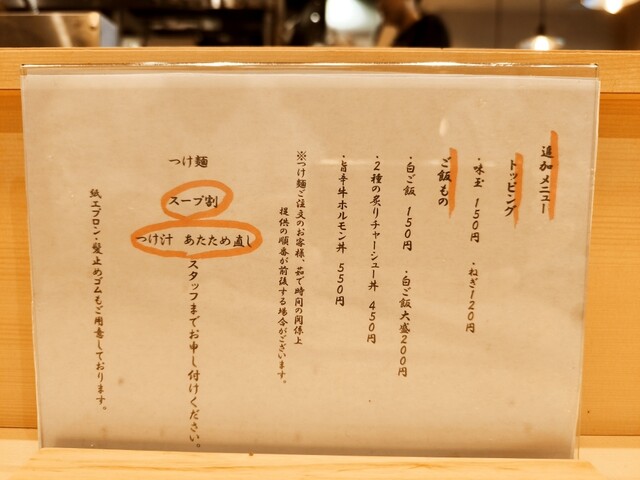 追加メニュー
トッピング
・味玉 150円 ・ねぎ120円
ご飯もの
・白ご飯 150円 ・白ご飯大盛200円
・2種の炙りチャーシュー丼 450円
・旨辛牛ホルモン丼 550円
※つけ麺ご注文のお客様、茹で時間の関係上
提供の順番が前後する場合がございます。
つけ麺
スープ割
つけ汁 あたため直し
スタッフまでお申し付けください。
紙エプロン・髪止めゴムもご用意しております。